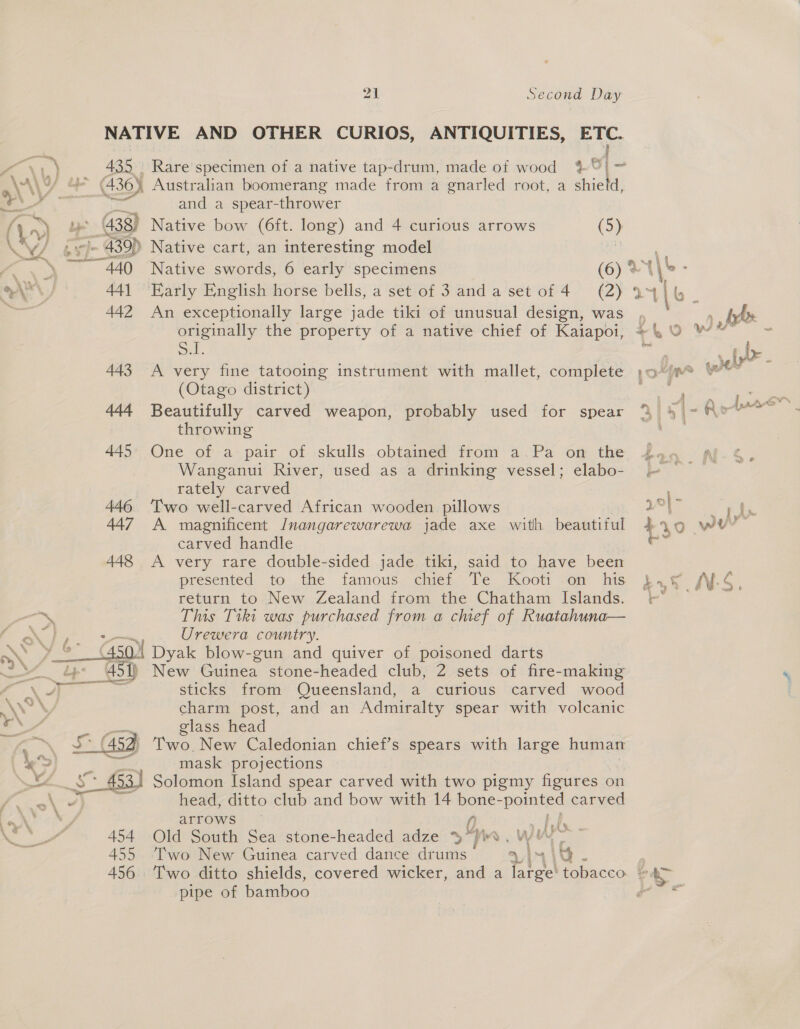 21 Second Day
NATIVE AND OTHER CURIOS, ANTIQUITIES, ETC.
435 Rare specimen of a native tap-drum, made of wood
436 Australian boomerang made from a gnarled root, a shield,
and a spear-thrower
438 Native bow (6ft. long) and 4 curious arrows (5)
439 Native cart, an interesting model
440 Native swords, 6 early specimens (6)
441 Early English horse bells, a set of 3 and a set of 4 (2)
442 An exceptionally large jade tiki of unusual design, was
originally the property of a native chief of Kaiapoi,
S.I.
443 A very fine tatooing instrument with mallet, complete
(Otago district)
444 Beautifully carved weapon, probably used for spear
throwing
445 One of a pair of skulls obtained from a Pa on the
Wanganui River, used as a drinking vessel; elabo-
rately carved
446 Two well-carved African wooden pillows
447 A magnificent Inangarewarewa jade axe with beautiful
carved handle
448 A very rare double-sided jade tiki, said to have been
presented to the famous chief Te Kooti on his N.S.
return to New Zealand from the Chatham Islands.
This Tiki was purchased from a chief of Ruatahuna—
Urewera country.
450 Dyak blow-gun and quiver of poisoned darts
451 New Guinea stone-headed club, 2 sets of fire-making
sticks from Queensland, a curious carved wood
charm post, and an Admiralty spear with volcanic
glass head
452 Two New Caledonian chief's spears with large human
mask projections
453 Solomon Island spear carved with two pigmy figures on
head, ditto club and bow with 14 bone-pointed carved
arrows
454 Old South Sea stone-headed adze
455 Two New Guinea carved dance drums
456 Two ditto shields, covered wicker, and a large tobacco
pipe of bamboo